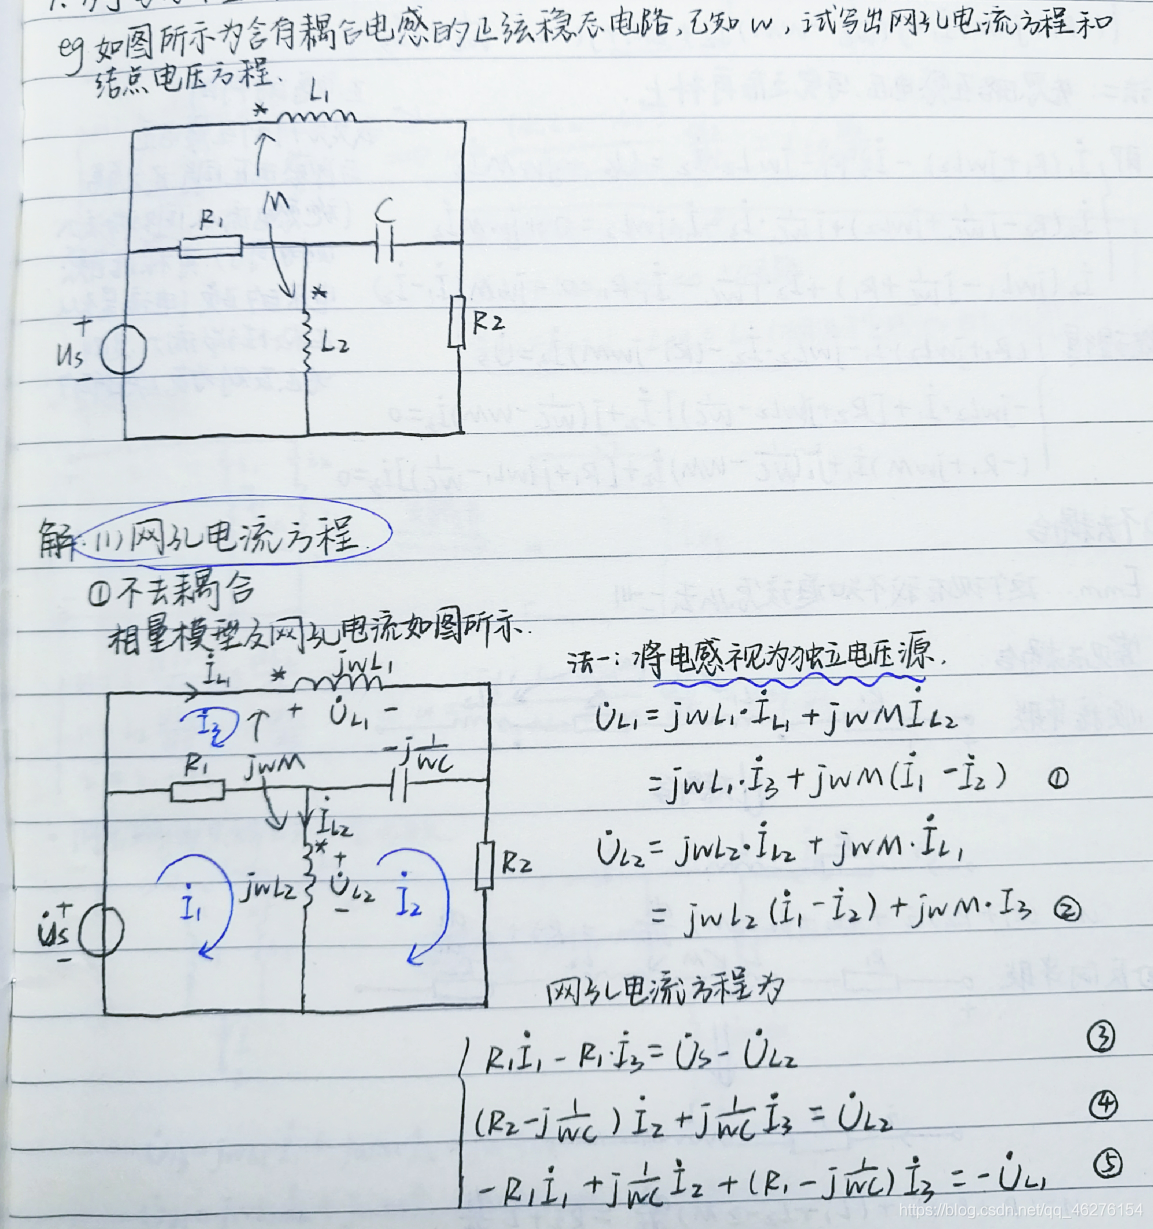 eg 如图所示为含有耦合电感的正弦稳态电路,已知w,试写出网孔电流方程和
结点电压方程.
* L₁
M
R₁ C
*
+ Us - L₂ R₂
解:(1)网孔电流方程.
①不去耦合
相量模型及网孔电流如图所示.
法一:将电感视为独立电压源.
İL₁ * jwL₁
+ U̇L₁ -
İ₃
R₁ jwM -j1/wC
İL₂
* + U̇L₂ -
jwL₂ R₂
İ₁ İ₂
U̇s + -
U̇L₁ = jwL₁·İL₁ + jwMİL₂
= jwL₁·İ₃ + jwM(İ₁ - İ₂) ①
U̇L₂ = jwL₂·İL₂ + jwM·İL₁
= jwL₂(İ₁ - İ₂) + jwM·I₃ ②
网孔电流方程为
R₁İ₁ - R₁·İ₃ = U̇s - U̇L₂ ③
(R₂ - j1/wC)İ₂ + j1/wC İ₃ = U̇L₂ ④
-R₁İ₁ + j1/wC İ₂ + (R₁ - j1/wC)İ₃ = -U̇L₁ ⑤
https://blog.csdn.net/qq_46276154